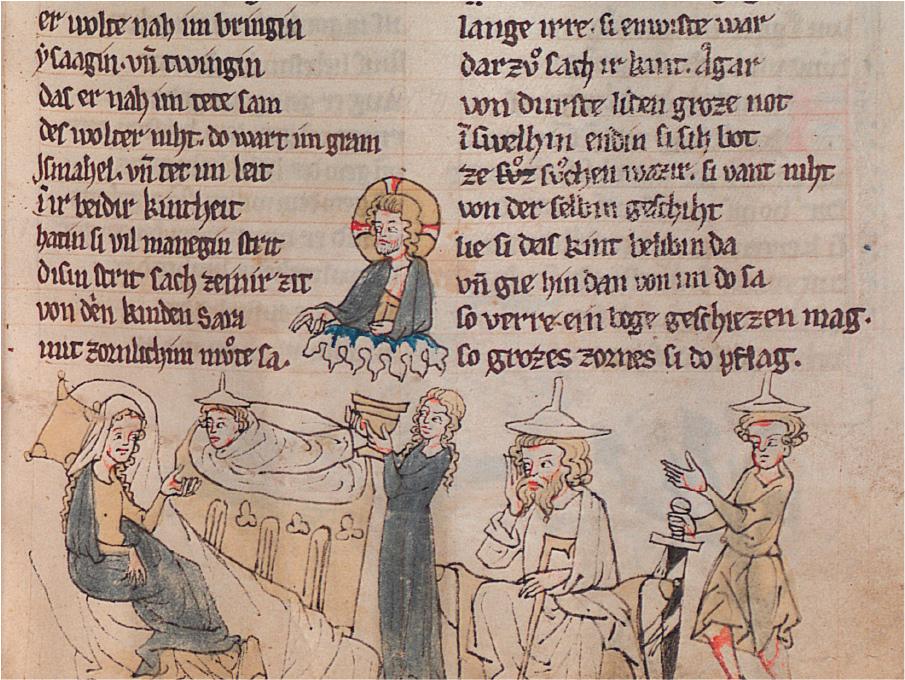 er wolte nah im bringin
ysaagin. vn̄ twingin
das er nah im tete sam
des wolter niht. do wart im gram
Jsmahel. vn̄ tet im leit
ī ir beidir kintheit
hatin si vil manegin strit
disin strit sach zeinir zit
von den kinden Sara
mit zornlichim moͮte sa.
lange irre. si enwiste war
dar zvͦ sach ir kint. Agar
von durste liden groze not
ī swelhin endin si sih bot
ze svͦchen wazir. si vant niht
von der selbin geschiht
lie si das kint belibin da
vn̄ gie hin dan von im do sa
so verre ein boge geschiezen mag.
so grozes zornes si do pflag.